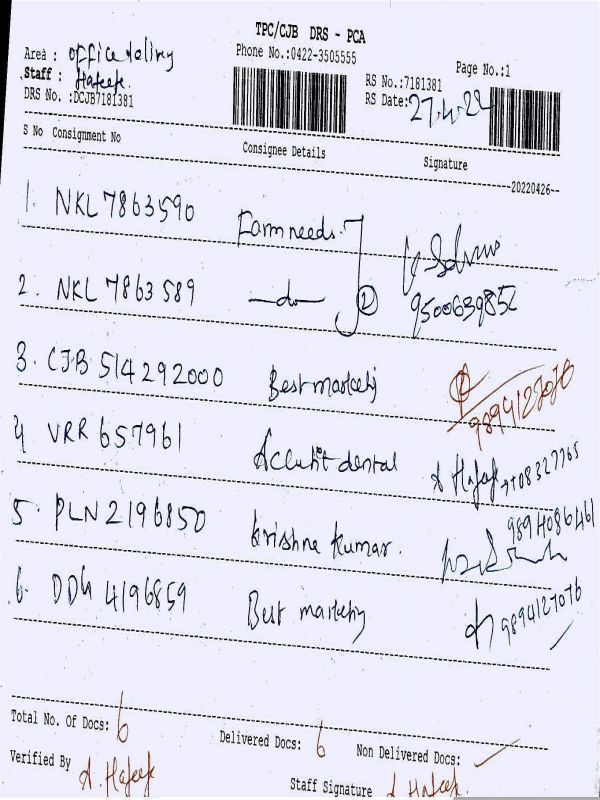 TPC/CJB DRS - PCA
Phone No.:0422-3505555
Area : office delivry
Staff : Hafeek.
DRS No. :DCJB7181381
RS No.:7181381
RS Date:27.4.22
Page No.:1
S No Consignment No Consignee Details Signature
20220426
1. NKL 7863590 Farm needs.
2. NKL 7863589 —do— 2 9500639852
3. CJB 514292000 Best marketj 9894127076
4 VRR 657961 dental A Hafeek 7708327765
5. PLN 2196850 Krishna Kumar. 9894086461
6. DDG 4196859 But marketig 9894127076
Total No. Of Docs: 6 Delivered Docs: 6 Non Delivered Docs:
Verified By A. Hafeek Staff Signature A Hafeek.